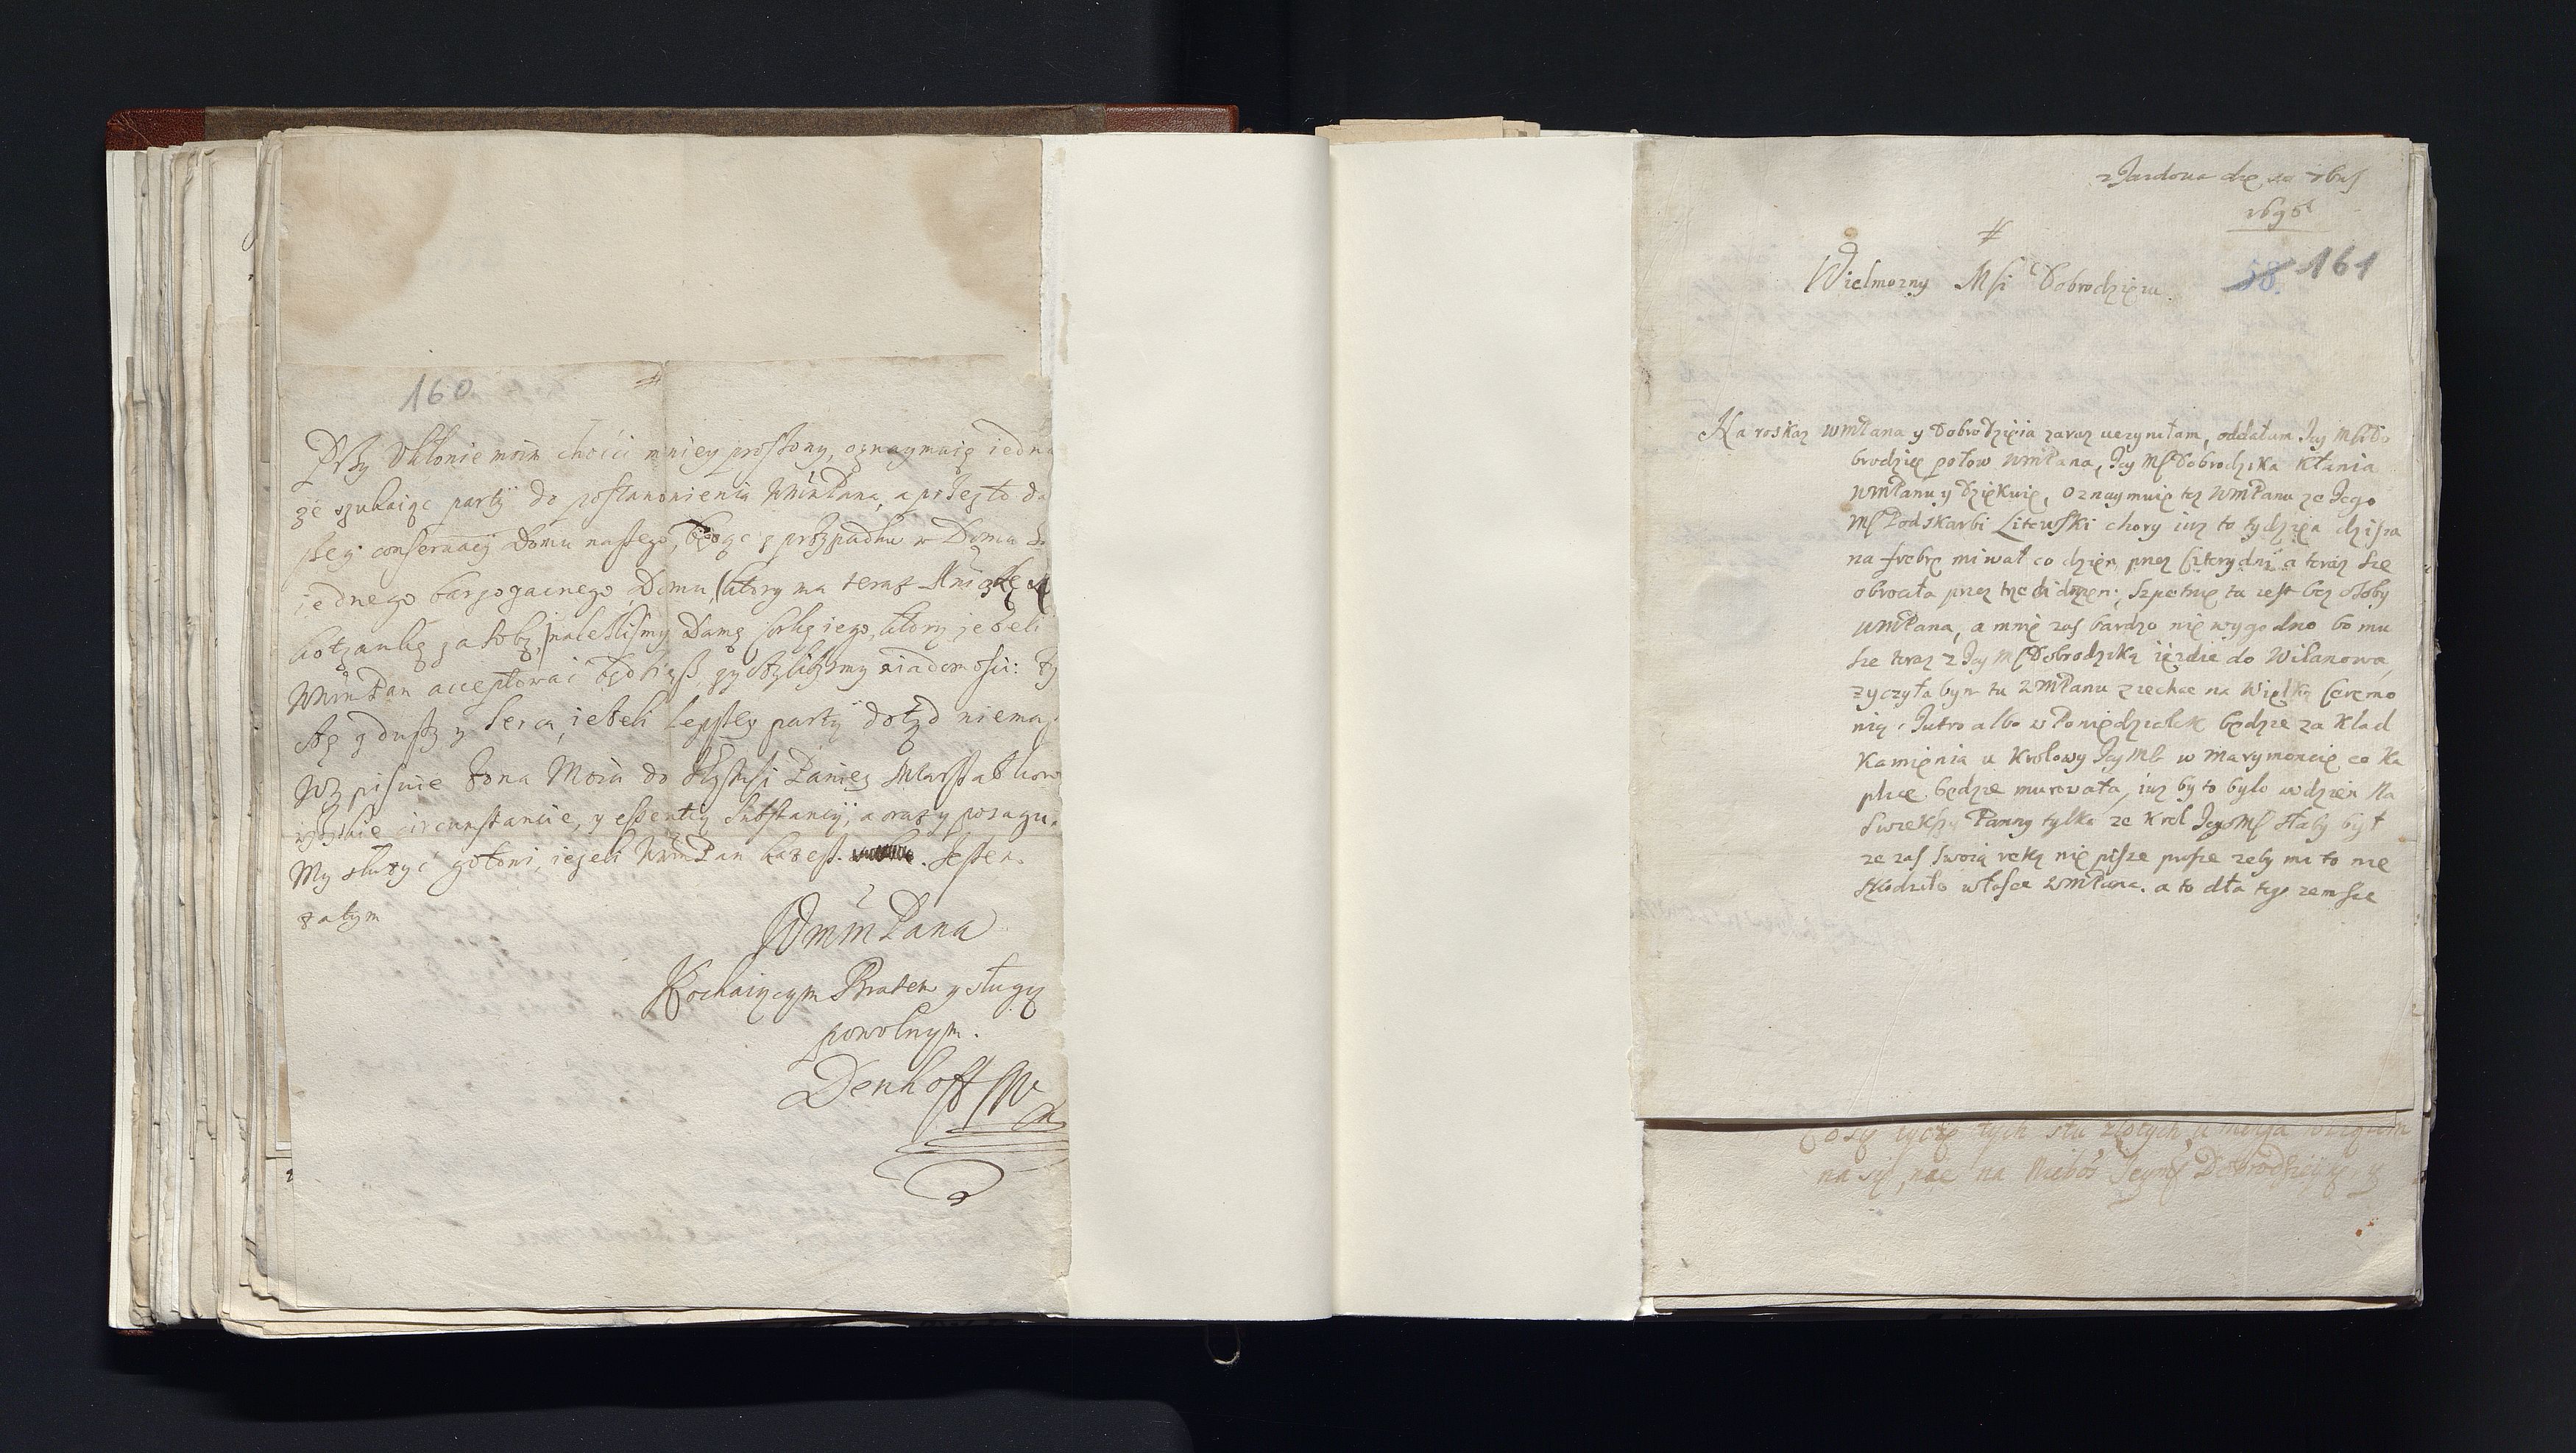 160
#
Przy Ukłonie moim choići mniey proszony, oznaymuię iedna
że szukaiąc partÿ do postanowienia WMMPana, a przez to da
szey conserwacÿ Domu naszego, będąc z przypadku w Domu
iednego barzo zacnego Domu, (ktory ma teraz Xiniczkę
za sobą,) naleźliśmy Damę corkę iego, ktory jeżeli
WMMPan acceptować będziesz, wiadomości:
z duszy y serca, ieżeli lepszey partÿ dotąd niemasz
Wypisuie Żona Moia do Paniey Marszałkow
wszystkie circumstancie, y essentią substancÿ, a oraz y posagu.
My służyć gotowi, ieżeli WMMPan każesz. Jestem.
zatym
WMMPana
Kochaiącym Bratem y sługą
powolnym.
Denhoff
z Jazdowa die 10 7bris
1695
#
58. 161
Wielmozny Msci Dobrodzieiu.
Na roskaz WMPana y Dobrodzieia zaraz uczyniłam, oddałam Jey Msci Do
brodzie połow WMPana, Jey Msc Dobrodzika kłania
WMPanu y dziękuie, oznaymuie tez WMPanu ze Jego
Msc Podskarbi Litewski chory iuz to tydzien dzisia
na frebre miwał co dzien przez cztery dni a teraz sie
obrociła przez trzeci dzien; szpetnie tu iest bez osoby
WMPana, a mnie zas bardzo nie wygodno bo mu
sze teraz z Jey Msc Dobrodziką ieździe do Wilanowa,
zyczyłabym tu WMPanu ziechac na wielką ceremo
nią. Jutro albo w Poniedziałek będzie zakład
kamienia u Krolowy Jey Msc w Marymoncie co ka
plice będzie murowała, iuz by to było w dzien Na
swiekszy Panny tylko ze Krol Jego Msc słaby był
ze zas swoią reką nie pisze prosze zeby mi to nie
skodziło w łasce WMPana. a to dla tego zem sie
Cosię tycze tych stu złotych
na się, nae na Jeyms Dobrodzieykę y